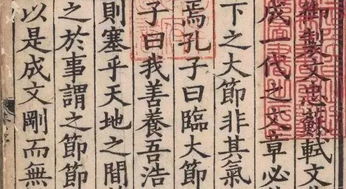 御製文忠蘇軾文
成一代之文章必
下之大節非其氣
焉孔子曰臨大節
子曰我善養吾浩
則塞乎天地之間
之於事謂之節節
以是成文剛而無